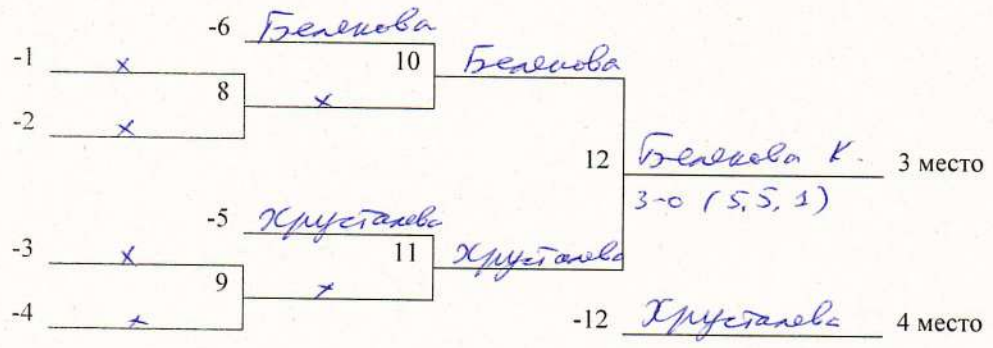 -6 Белекова
-1 х
10 Белекова
8 х
-2 х
12 Белекова К. 3 место
3-0 (5,5,1)
-5 Хрусталева
-3 х
11 Хрусталева
9 х
-4 х
-12 Хрусталева 4 место